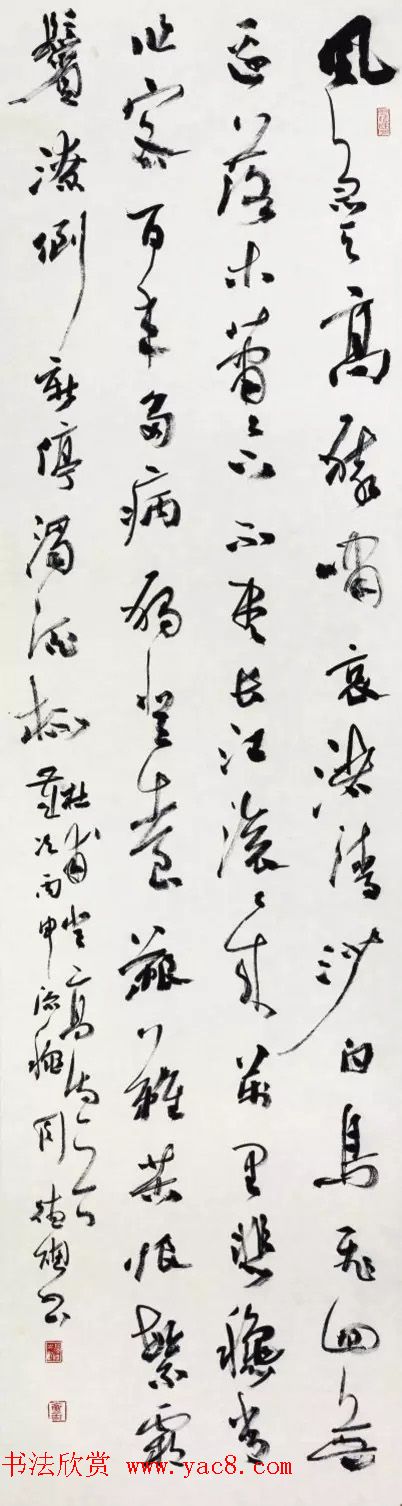 風急天高猿嘯哀渚清沙白鳥飛迴無
邊落木蕭々下不盡長江滚々來萬里悲穐常
作客百年多病獨登臺艱難苦恨繁霜
鬢潦倒新停濁酒杯
杜甫登高詩
丙申 周德 書
书法欣赏 www.yac8.com